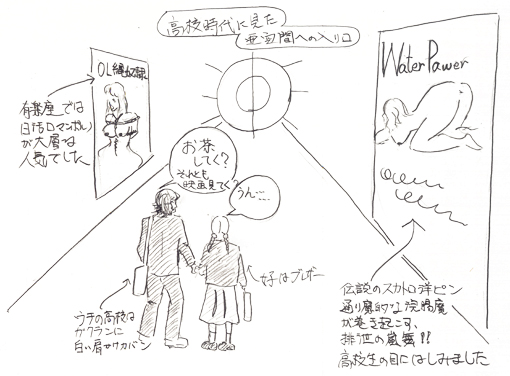 高校時代に見た
亜空間への入り口
OL縄奴隷
有楽座では
日活ロマンポルノ
が大層な
人気でした
Water Pawer
お茶
してく?
それとも
映画見てく?
うん…
女子はブレザー
ウチの高校は
ガクランに
白い肩カケカバン
伝説のスカトロ洋ピン
通り魔的な浣腸魔
が巻き起こす、
排泄の嵐舞!!
高校生の目にはしみました